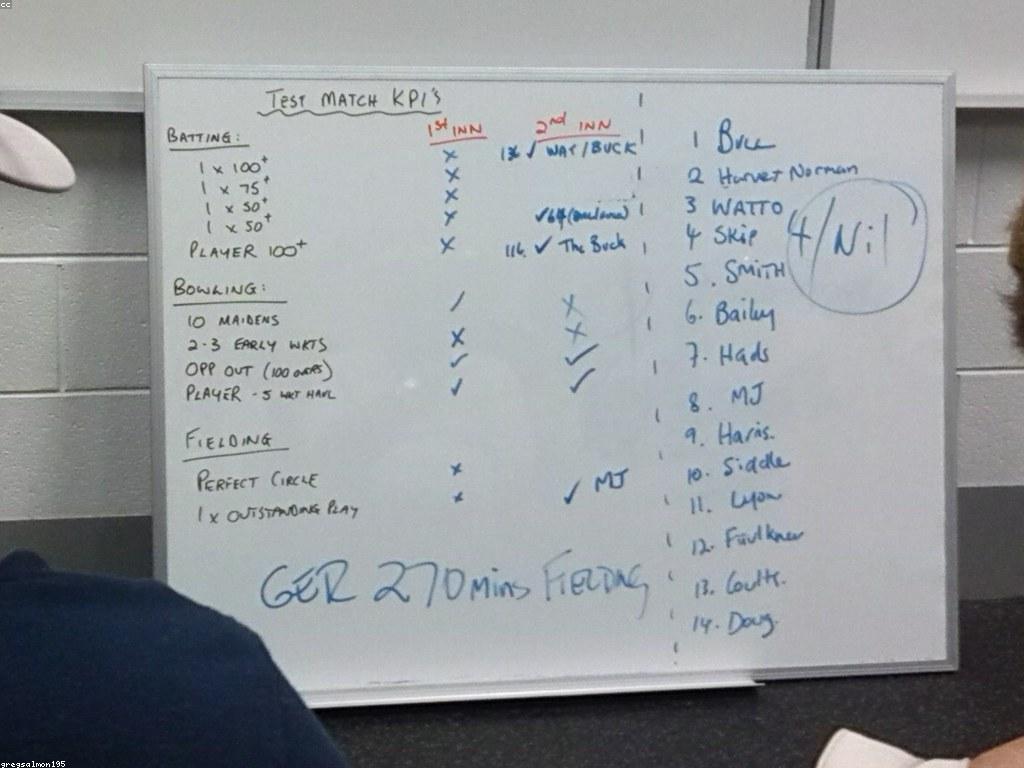 cc
TEST MATCH KPI's
1st INN 2nd INN
BATTING:
1 x 100+ x 136 ✓ WAT/BUCK
1 x 75+ x
1 x 50+ x
1 x 50+ x ✓64
PLAYER 100+ x 116. ✓ The Buck
BOWLING:
10 MAIDENS / x
2-3 EARLY WKTS x x
OPP OUT (100 overs) ✓ ✓
PLAYER - 5 WKT HAUL ✓ ✓
FIELDING
PERFECT CIRCLE x
1 x OUTSTANDING PLAY x ✓ MJ
GER 270 mins FIELDING
1 Bucc
2 Harvet Norman
3 WATTO
4 Skip
5. SMITH
6. Bailey
7. Hads
8. MJ
9. Harris.
10. Siddle
11. Lyon
12. Faulkner
13. Coults.
14. Doug.
4/Nil
gregsalmon195